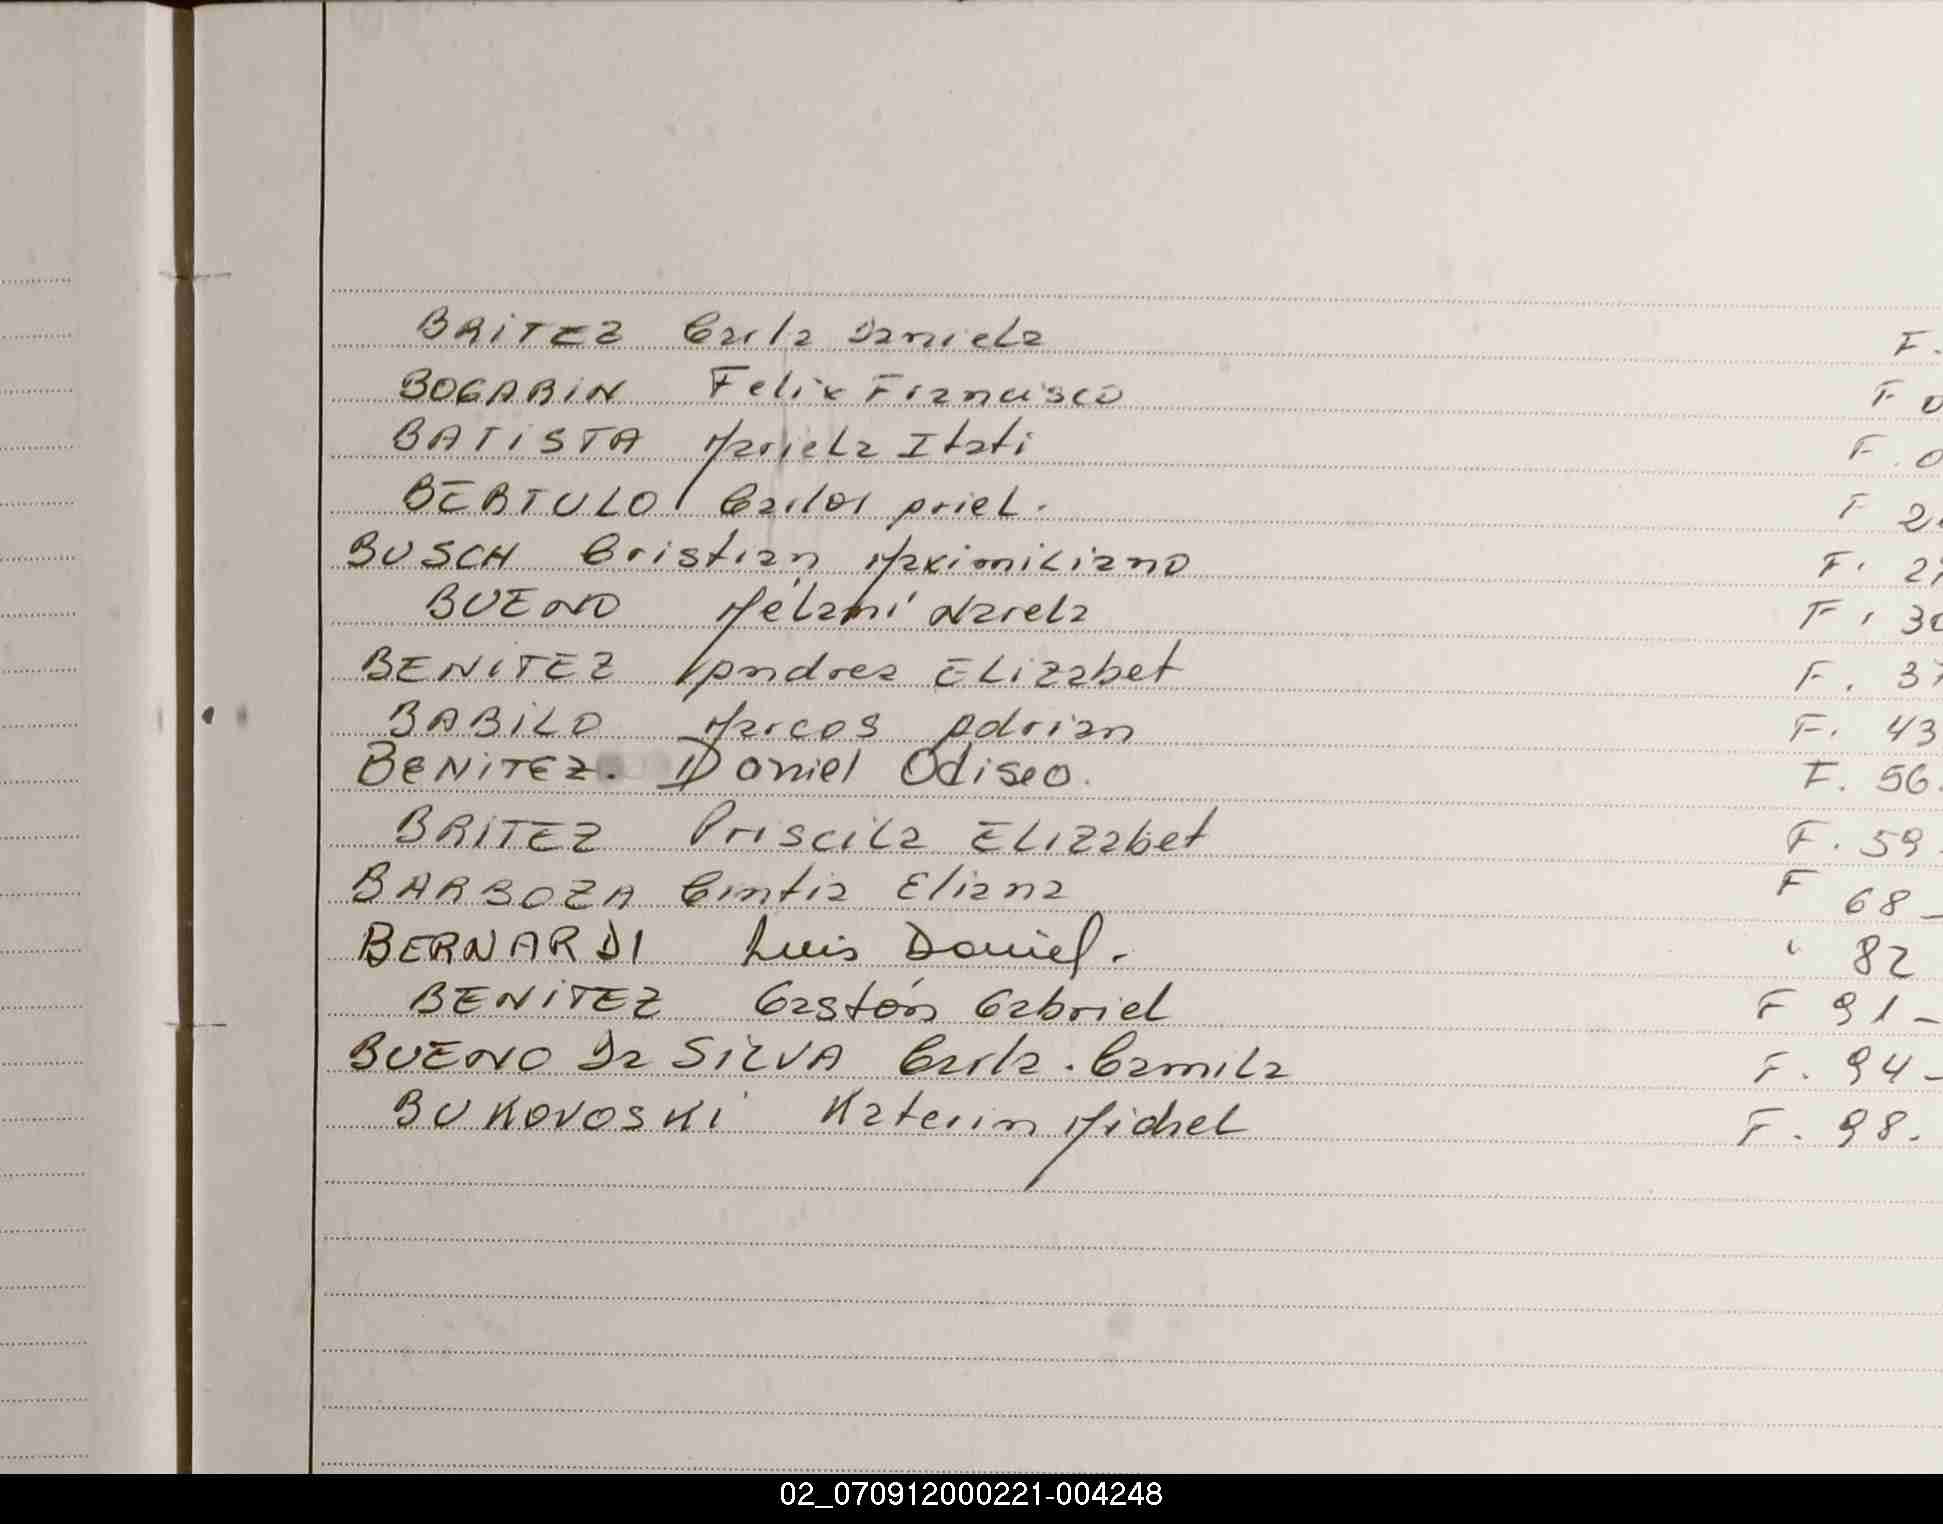 BRITEZ Carla Daniela F.
BOGARIN Felix Francisco F 0
BATISTA Mariela Itati F. 0
BERTULO Carlos Ariel. F 2
BUSCH Cristian Maximiliano F. 27
BUENO Mélani Narela F. 30
BENITEZ Andrea Elizabet F. 37
BABILO Marcos Adrian F. 43
BENITEZ. Daniel Odiseo. F. 56.
BRITEZ Priscila Elizabet F. 59.
BARBOZA Cintia Eliana F 68-
BERNARDI Luis Daniel. " 82
BENITEZ Gastón Gabriel F 91-
BUENO Da SILVA Carla. Camila F. 94-
BUKOVOSKI Katerin Michel F. 98.
02_070912000221-004248